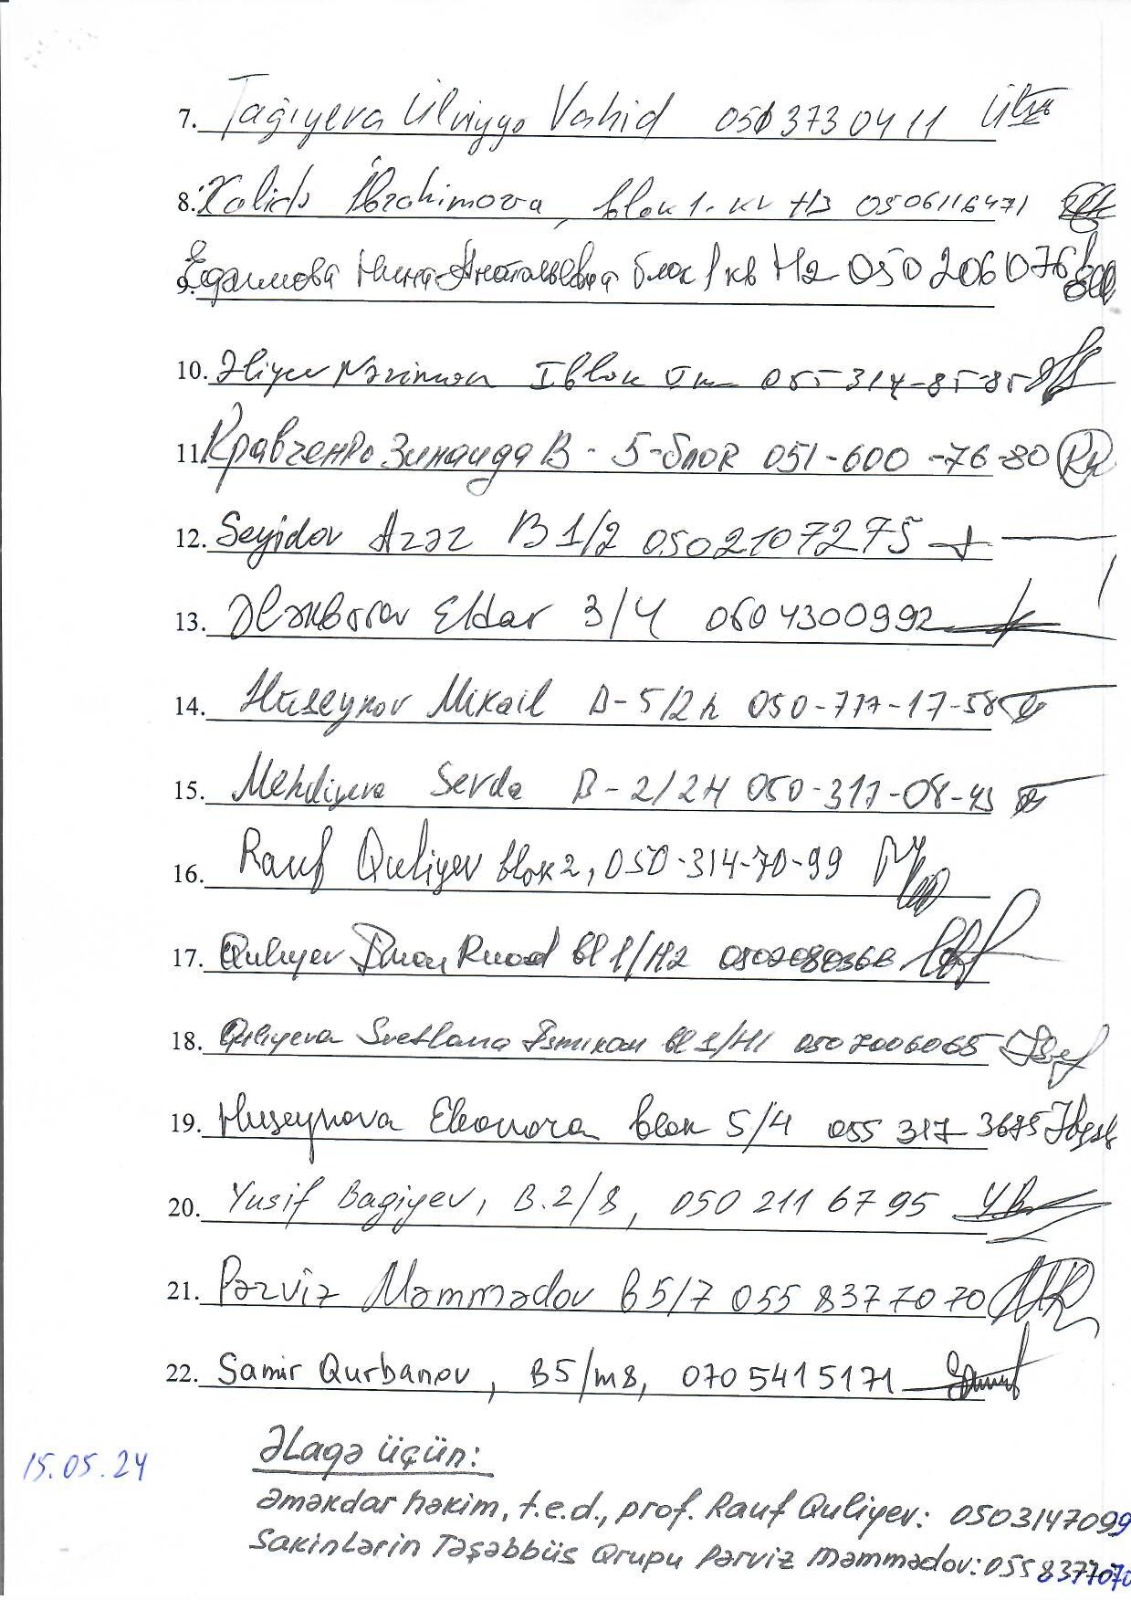 7. Tağıyeva Ülviyyə Vahid 050 373 04 11
8. Xalidə İbrahimova, blok 1. kv H3 0506116471
9. Нина Анатольевна блок 1 кв H2 050 206 07 6
10. Əliyev Nəriman I blok 055-314-85-85
11. Кравченко Зинаида В - 5-блок 051-600-76-80
12. Seyidov Azər B 1/2 0502107275
13. Ələkbərov Eldar 3/4 0504300992
14. Hüseynov Mikail B-5/2 050-777-17-58
15. Mehdiyeva Sevda B-2/2H 050-317-08-43
16. Rauf Quliyev blok 2, 050-314-70-99
17. Quliyev bl 1/H2
18. Quliyeva Svetlana bl 1/H1 0507006065
19. Huseynova Eleonora blok 5/4 055 317 3695
20. Yusif Bagiyev, B.2/8, 050 211 67 95
21. Pərviz Məmmədov B5/7 055 837 70 70
22. Samir Qurbanov, B5/m8, 070 541 51 71
Əlaqə üçün:
15.05.24
Əməkdar həkim, t.e.d., prof. Rauf Quliyev: 0503147099
Sakinlərin Təşəbbüs Qrupu Pərviz Məmmədov: 055 8377070